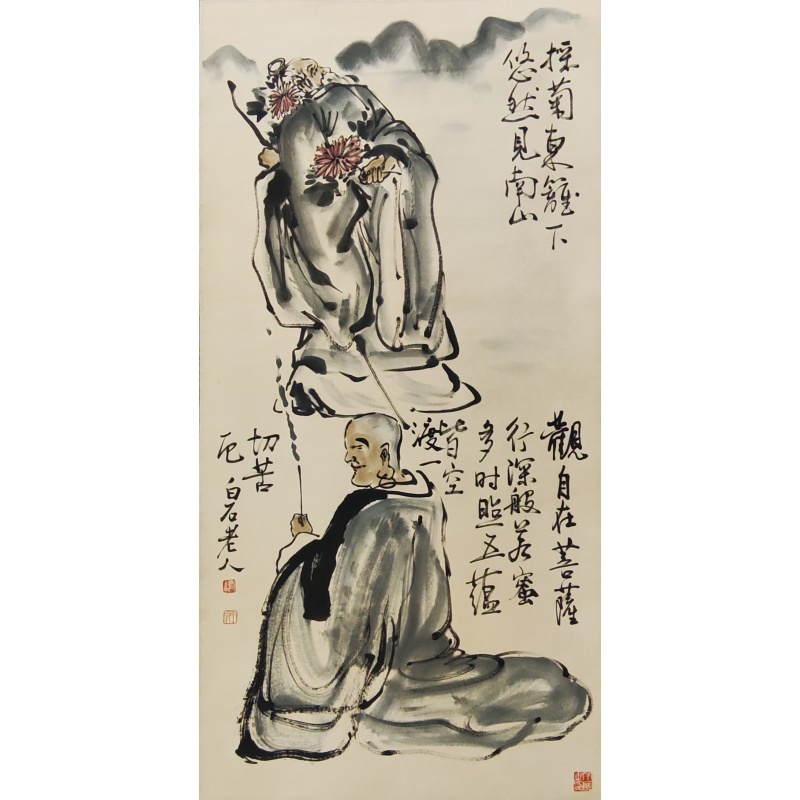 採菊東籬下
悠然見南山
觀自在菩薩
行深般若蜜
多时照五蘊
皆空
渡一
切苦
厄 白石老人